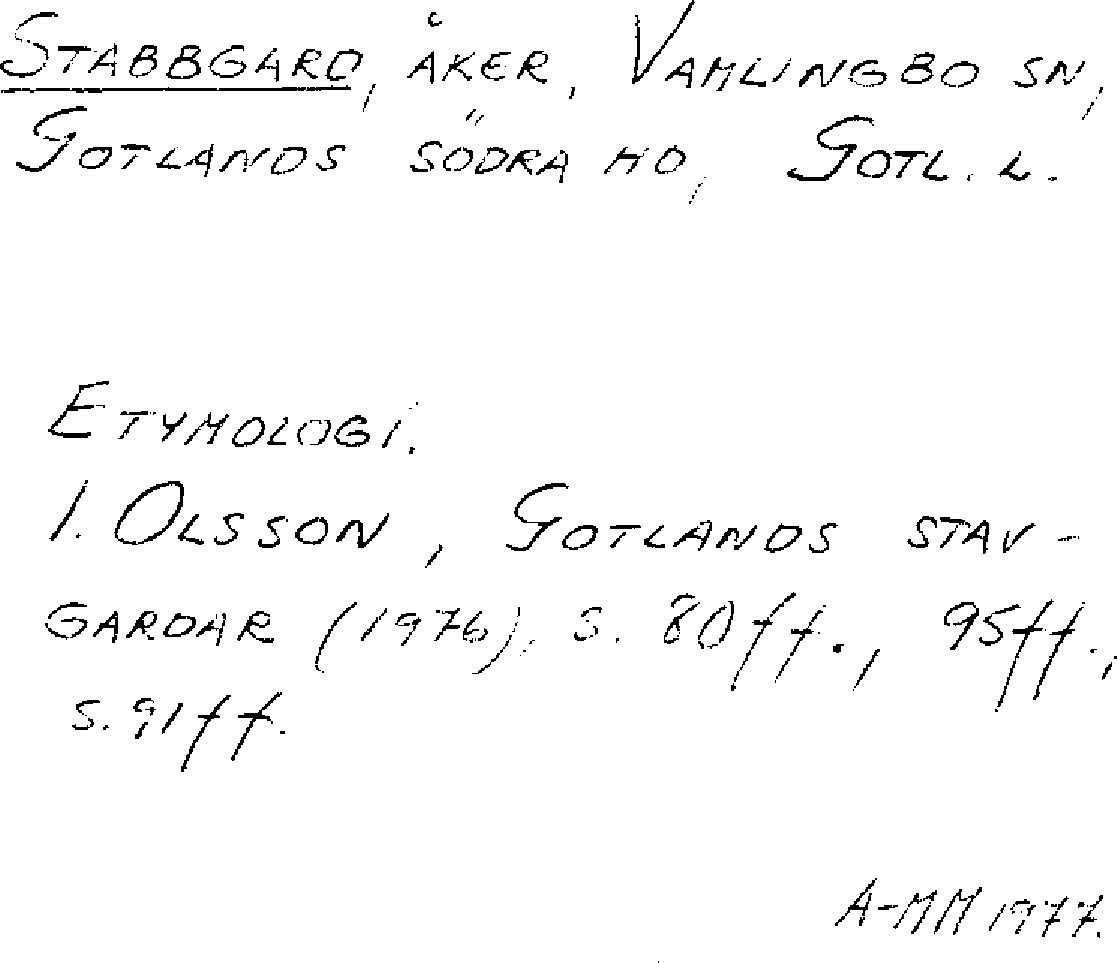 STABBGARD, ÅKER, VAMLINGBO SN,
GOTLANDS SÖDRA HD, GOTL. L.
ETYMOLOGI.
I. OLSSON, GOTLANDS STAV-
GARDAR (1976), S. 80ff., 95ff.,
S. 91ff.
A-MM 1977.